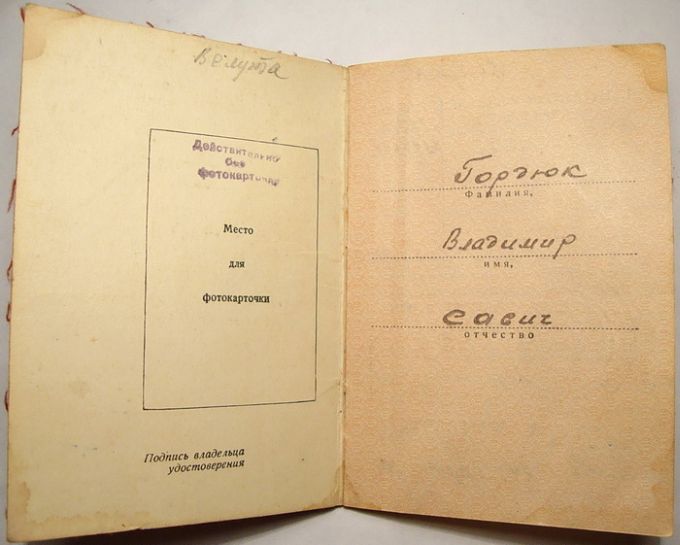 Велута
Действительно
без
фотокарточки
Место
для
фотокарточки
Подпись владельца
удостоверения
Гордюк
Фамилия,
Владимир
имя,
Савич
отчество